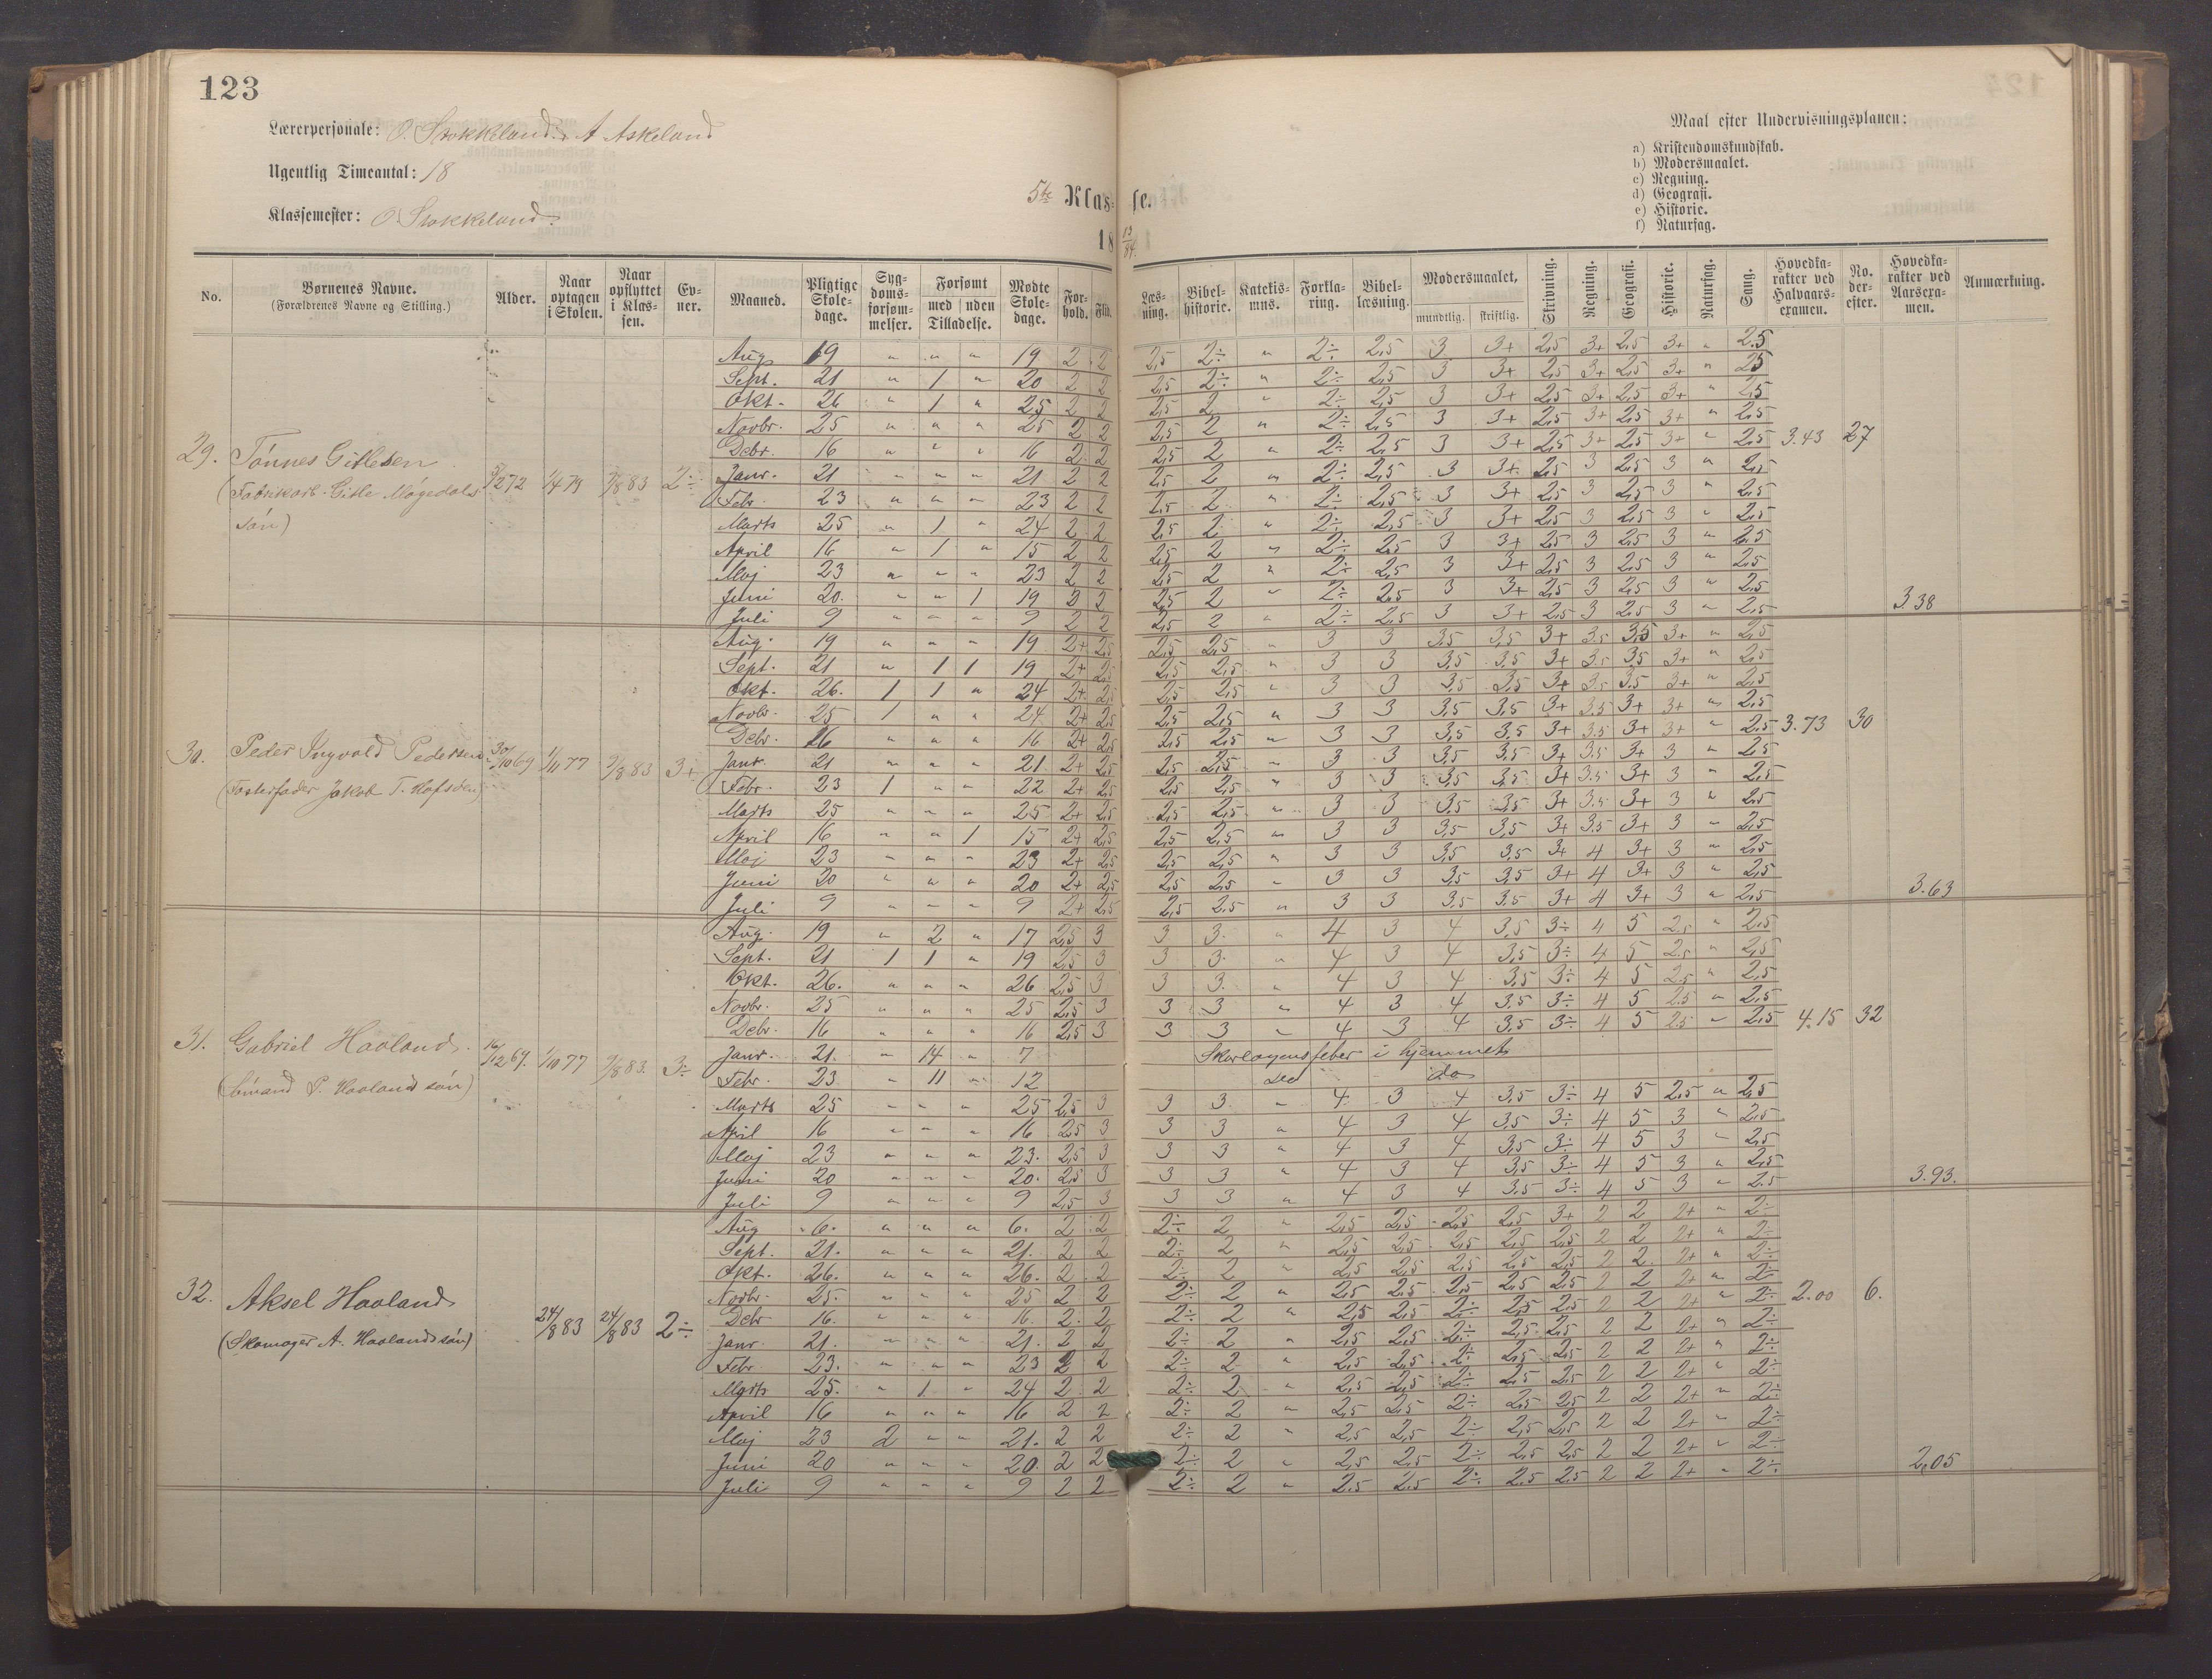 123
Lærerpersonale: O. Stokkeland. A Askeland
Ugentlig Timeantal: 18
Klassemester: O. Stokkeland
5te Klas- se.
18 83/84.
Maal efter Undervisningsplanen:
a) Kristendomskundskab.
b) Modersmaalet.
c) Regning.
d) Geografi.
e) Historie.
f) Naturfag.
No. Børnenes Navne. (Forældrenes Navne og Stilling.) Alder. Naar optagen i Skolen. Naar opflyttet i Klassen. Evner. Maaned. Pligtige Skoledage. Sygdomsforsømmelser. Forsømt med uden Tilladelse. Mødte Skoledage. Forhold. Flid. Læsning. Bibelhistorie. Katekismus. Forklaring. Bibellæsning. Modersmaalet, mundtlig. skriftlig. Skrivning. Regning. Geografi. Historie. Naturfag. Sang. Hovedkarakter ved Halvaarsexamen. No. derefter. Hovedkarakter ved Aarsexamen. Anmærkning.
29. Tönnes Gitlesen
(Fabrikarb. Gitle Møgedals sön)
1/4 79 9/8 83 2÷
Aug 19 " " " 19 2 2 2,5 2÷ " 2÷ 2,5 3 3+ 2,5 3+ 2,5 3+ " 2.5
Sept. 21 " 1 " 20 2 2 2,5 2÷ " 2÷ 2,5 3 3+ 2,5 3+ 2,5 3+ " 2,5
Okt. 26 " 1 " 25 2 2 2,5 2 " 2÷ 2,5 3 3+ 2,5 3+ 2,5 3+ " 2,5
Novbr. 25 " " " 25 2 2 2,5 2 " 2÷ 2,5 3 3+ 2,5 3+ 2,5 3+ " 2,5
Debr. 16 " " " 16 2 2 2,5 2 " 2÷ 2,5 3 3+ 2,5 3+ 2,5 3+ " 2,5 3.43 27
Janr. 21 " " " 21 2 2 2,5 2 " 2÷ 2,5 3 3+ 2,5 3 2,5 3 " 2,5
Febr. 23 " " " 23 2 2 2,5 2 " 2÷ 2,5 3 3+ 2,5 3 2,5 3 " 2,5
Marts 25 " 1 " 24 2 2 2,5 2 " 2÷ 2,5 3 3+ 2,5 3 2,5 3 " 2,5
April 16 " 1 " 15 2 2 2,5 2 " 2÷ 2,5 3 3+ 2,5 3 2,5 3 " 2,5
Maj 23 " " " 23 2 2 2,5 2 " 2÷ 2,5 3 3+ 2,5 3 2,5 3 " 2,5
Juni 20. " " 1 19 2 2 2,5 2 " 2÷ 2,5 3 3+ 2,5 3 2,5 3 " 2,5
Juli 9 " " " 9 2 2 2,5 2 " 2÷ 2,5 3 3+ 2,5 3 2,5 3 " 2,5 3.38
30. Peder Ingvald Pedersen
(Fosterfader Jakob T. Hafsöen)
30/10 69 1/11 77 9/8 83 3+
Aug. 19 " " " 19 2+ 2,5 2,5 2,5 " 3 3 3,5 3,5 3+ 3.5 3,5 3+ " 2,5
Sept. 21 " 1 1 19 2+ 2,5 2,5 2,5 " 3 3 3,5 3,5 3+ 3.5 3,5 3+ " 2,5
Okt. 26. 1 1 " 24 2+ 2,5 2,5 2,5 " 3 3 3,5 3,5 3+ 3.5 3,5 3+ " 2,5
Novbr. 25 1 " " 24 2+ 2,5 2,5 2,5 " 3 3 3,5 3,5 3+ 3.5 3+ 3+ " 2,5
Debr. 16 " " " 16 2+ 2,5 2,5 2,5 " 3 3 3,5 3,5 3+ 3.5 3+ 3+ " 2,5 3.73 30
Janr. 21 " " " 21 2+ 2,5 2,5 2,5 " 3 3 3,5 3,5 3+ 3.5 3+ 3 " 2,5
Febr. 23 1 " " 22 2+ 2,5 2,5 2,5 " 3 3 3,5 3,5 3+ 3.5 3+ 3 " 2,5
Marts 25 " " " 25 2+ 2,5 2,5 2,5 " 3 3 3,5 3,5 3+ 3.5 3+ 3 " 2,5
April 16 " " 1 15 2+ 2,5 2,5 2,5 " 3 3 3,5 3,5 3+ 3.5 3+ 3 " 2,5
Maj 23 " " " 23 2+ 2,5 2,5 2,5 " 3 3 3,5 3,5 3+ 4 3+ 3 " 2,5
Juni 20 " " " 20 2+ 2,5 2,5 2,5 " 3 3 3,5 3,5 3+ 4 3+ 3 " 2,5
Juli 9 " " " 9 2+ 2,5 2,5 2,5 " 3 3 3,5 3.5 3+ 4 3+ 3 " 2,5 3.63
31. Gabriel Haaland.
(Sömand P. Haalands sön)
16/12 69. 1/10 77 9/8 83. 3÷
Aug. 19 " 2 " 17 2,5 3 3 3. " 4 3 4 3,5 3÷ 4 5 2.5 " 2,5
Sept. 21 1 1 " 19 2,5 3 3 3. " 4 3 4 3,5 3÷ 4 5 2.5 " 2,5
Okt. 26. " " " 26 2,5 3 3 3. " 4 3 4 3,5 3÷ 4 5 2.5 " 2,5
Novbr. 25 " " " 25 2,5 3 3 3 " 4 3 4 3.5 3÷ 4 5 2.5 " 2,5
Debr. 16 " " " 16 2,5 3 3 3 " 4 3 4 3,5 3÷ 4 5 2.5 " 2,5 4.15 32
Janr. 21. " 14 " 7 Skarlagensfeber i hjemmet
Febr. 23 " 11 " 12 do do
Marts 25 " " " 25 2,5 3 3 3 " 4 3 4 3,5 3÷ 4 5 2,5 " 2,5
April 16 " " " 16 2,5 3 3 3 " 4 3 4 3,5 3÷ 4 5 3 " 2,5
Maj 23 " " " 23. 2,5 3 3 3 " 4 3 4 3,5 3÷ 4 5 3 " 2,5
Juni 20 " " " 20. 2,5 3 3 3 " 4 3 4 3,5 3÷ 4 5 3 " 2,5
Juli 9 " " " 9 2,5 3 3 3 " 4 3 4 3,5 3÷ 4 5 3 " 2.5 3.93.
32. Aksel Haaland
(Skomager A. Haalands sön)
24/8 83 24/8 83 2÷
Aug 6. " " " 6. 2 2 2÷ 2 " 2,5 2,5 2,5 2,5 3+ 2 2 2+ " 2÷
Sept. 21. " " " 21. 2 2 2÷ 2 " 2,5 2,5 2,5 2,5 2,5 2 2 2+ " 2÷
Okt. 26. " " " 26. 2 2 2÷ 2 " 2,5 2,5 2,5 2,5 2,5 2 2 2+ " 2÷
Novbr. 25. " " " 25 2 2 2÷ 2 " 2,5 2,5 2,5 2,5 2,5 2 2 2+ " 2÷ 2.00 6.
Debr 16. " " " 16. 2. 2 2÷ 2 " 2,5 2,5 2÷ 2,5 2,5 2 2 2+ " 2÷
Janr 21. " " " 21. 2 2 2÷ 2 " 2,5 2,5 2÷ 2,5 2,5 2 2 2+ " 2÷
Febr. 23. " " " 23 2 2 2÷ 2 " 2,5 2,5 2÷ 2,5 2,5 2 2 2+ " 2÷
Marts 25. " 1 " 24 2 2 2÷ 2 " 2,5 2,5 2÷ 2,5 2,5 2 2 2+ " 2÷
April 16 " " " 16 2 2 2÷ 2 " 2,5 2,5 2÷ 2,5 2,5 2 2 2+ " 2÷
Maj 23 2 " " 21. 2 2 2÷ 2 " 2,5 2,5 2÷ 2,5 2,5 2 2 2+ " 2÷
Juni 20 " " " 20. 2 2 2÷ 2 " 2,5 2,5 2÷ 2,5 2,5 2 2 2+ " 2÷
Juli 9 " " " 9 2 2 2÷ 2 " 2.5 2,5 2÷ 2.5 2.5 2 2 2+ " 2÷ 2,05